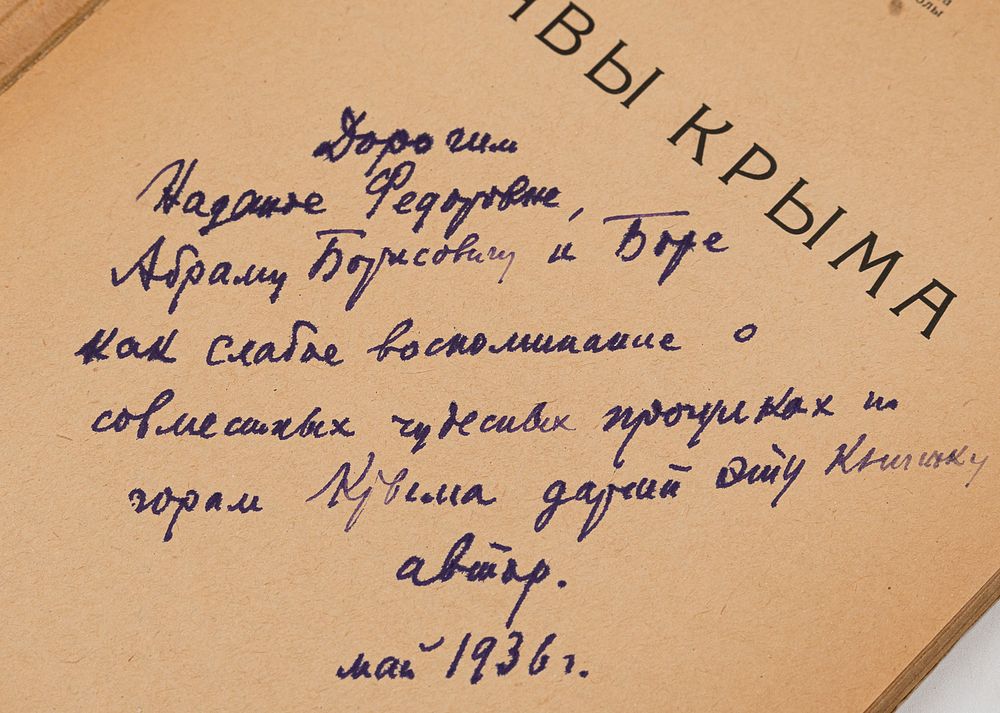 ВЫ КРЫМА
Дорогим
Надежде Федоровне,
Абраму Борисовичу и Боре
как слабое воспоминание о
совместных чудесных прогулках по
горам Крыма дарит эту книжку
автор.
май 1936 г.